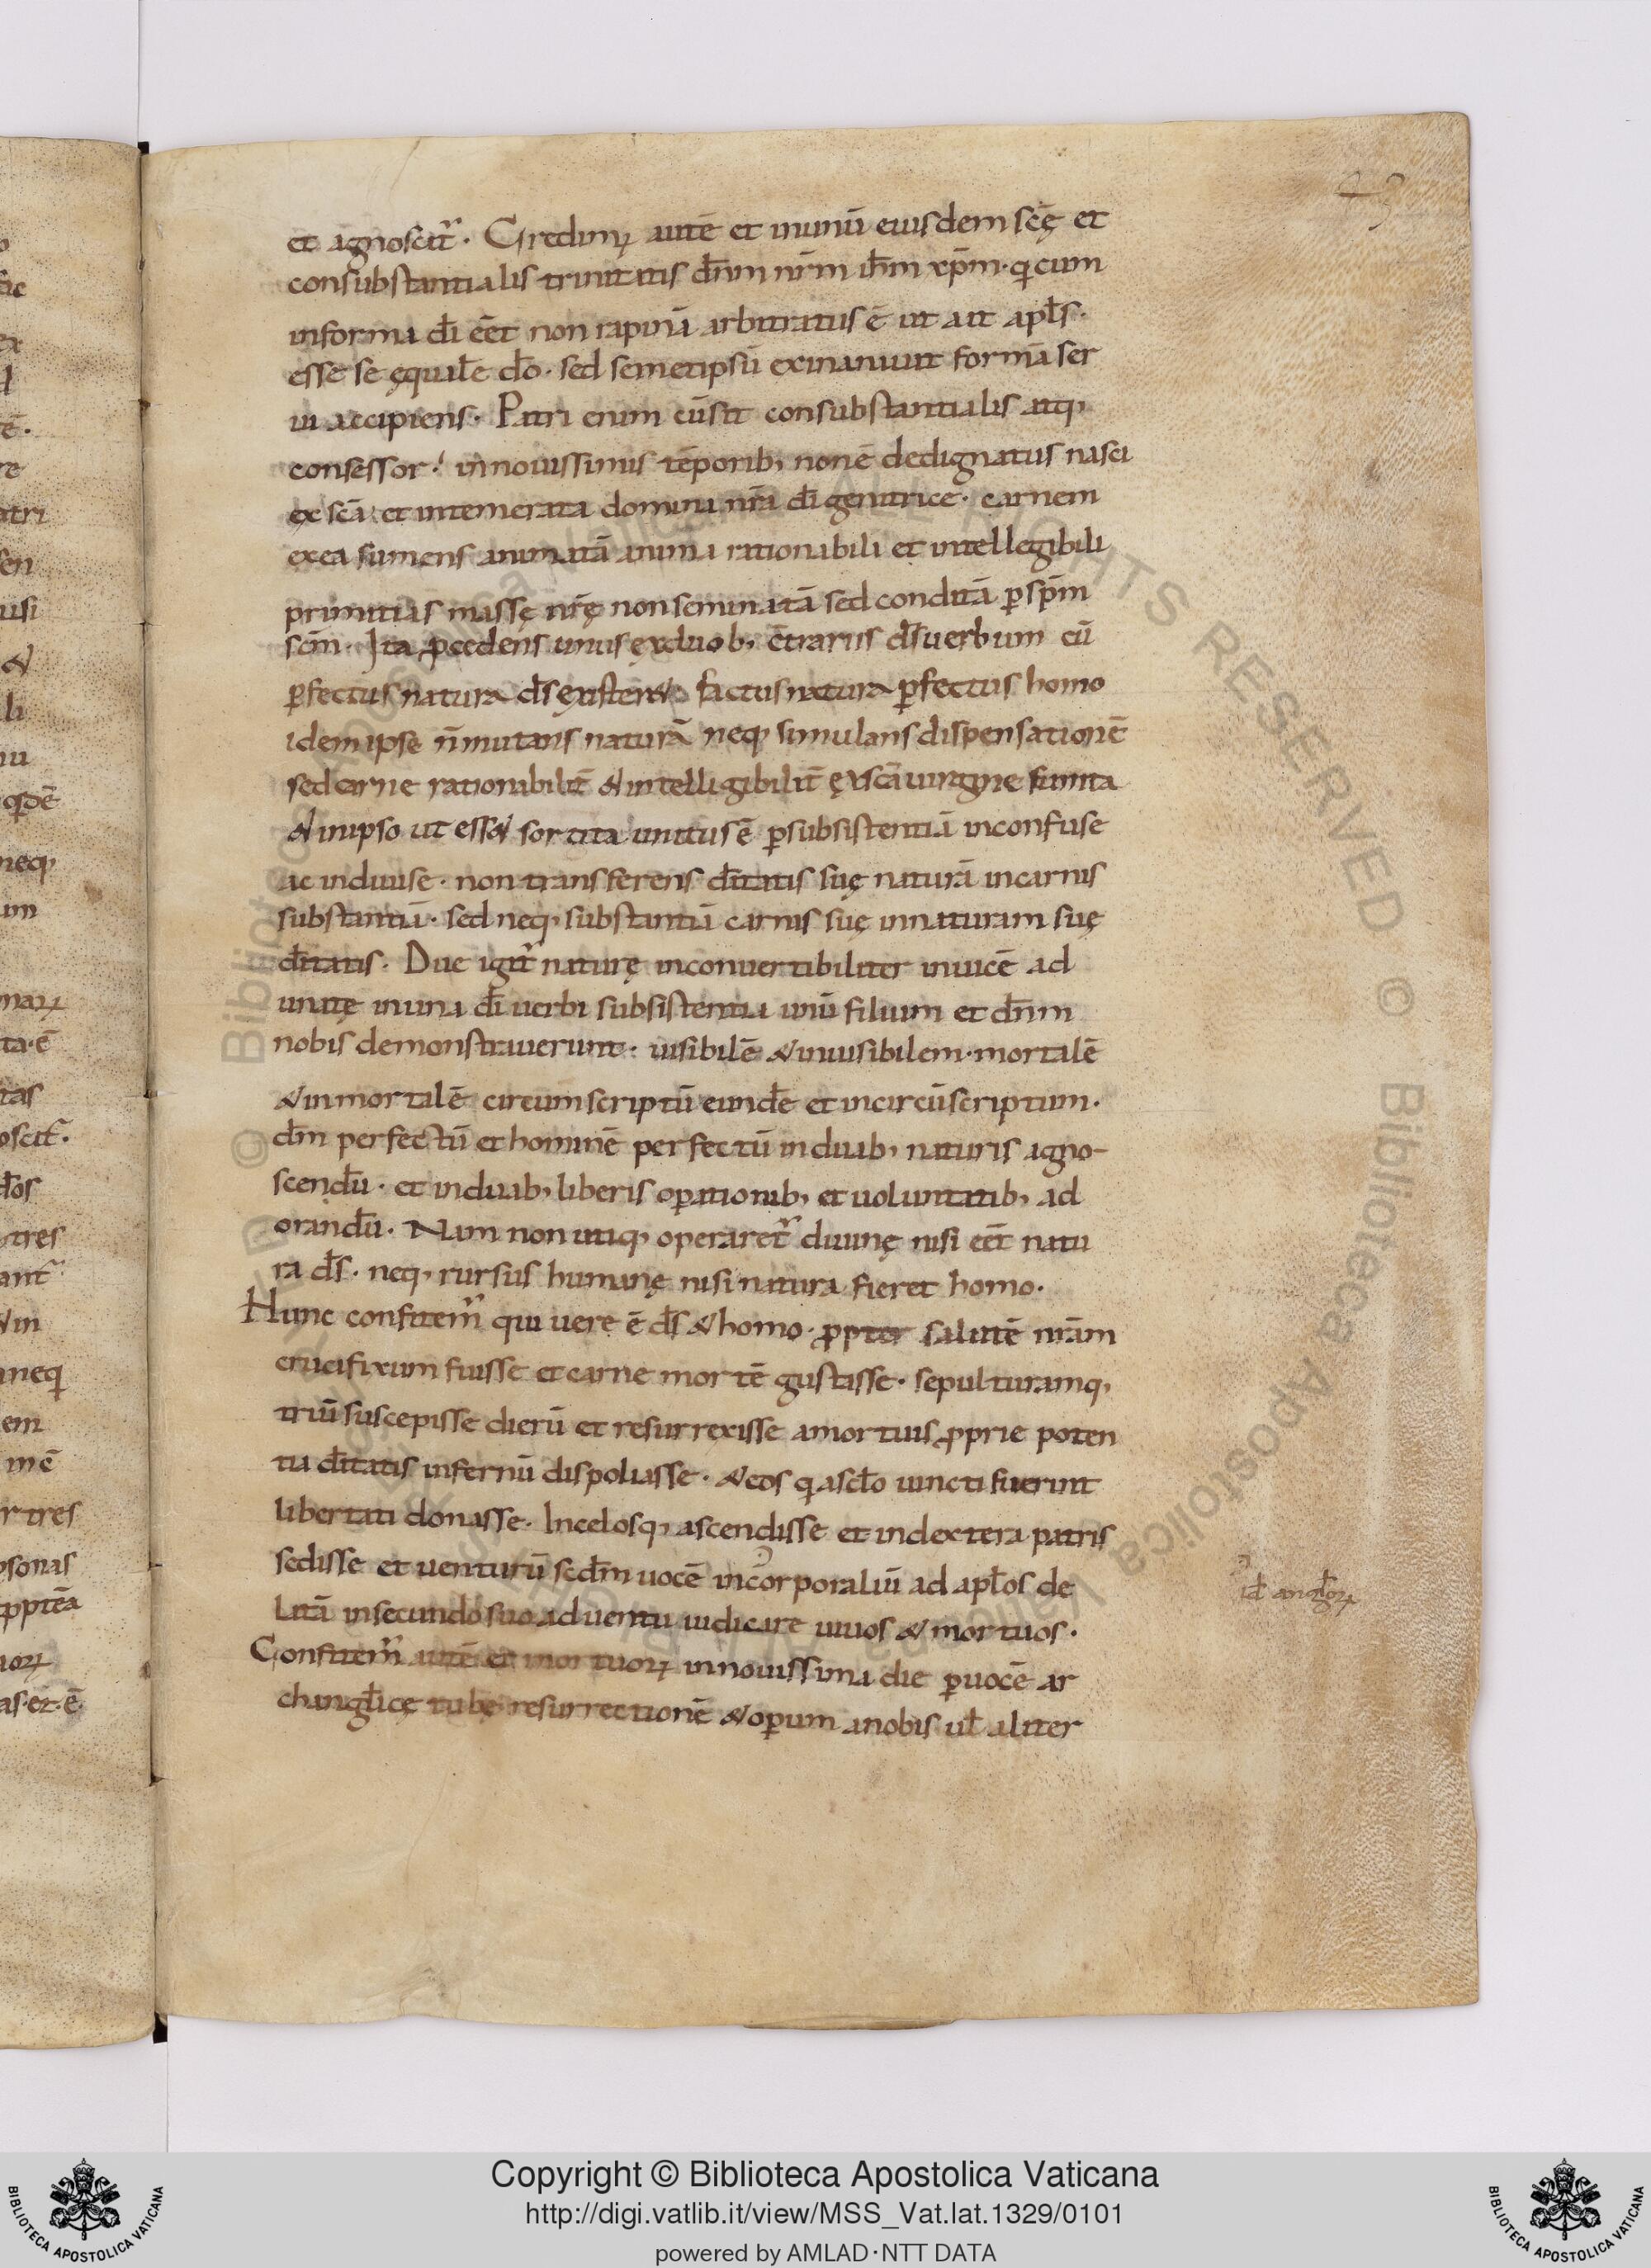 et agnoscit᷑. Credimꝰ autē et inunū eiusdem scę̄ et
consubstantialis trinitatis dn̄m nr̄m ih̄m xp̄m· qi cum
informa dī eēt non rapinā arbitratus ē ut ait apl̄s·
esse se ęqualē dō· sed semetipsū exinaniuit formā ser
ui accipiens· Patri enim cūsit consubstantialis atq;
consessor· innouissimis tēporib; nonē dedignatus nasci
ex scā et intemerata domina nr̄a dī genitricē· carnem
exea sumens animatā anima rationabili et intellegibili
primitias massę nr̄ę nonseminatā sed conditā ꝑsp̄m
scm̄· Ita ꝓcedens unus exduob; c̄trariis ds̄uerbum cū
ꝑfectus natura ds̄ ęxisteret factus natura ꝑfectus homo
idem ipse n̄mutans naturā neq; simulans dispensationē
sed carne rationabilit̄ & intelligibilit̄ ęxscā uirgine sumta
& inipso ut esset sortita unitus ē ꝑsubsistentiā inconfuse
ac indiuise· non transferens dītatis suę naturā incarnis
substantiā· sed neq; substantiā carnis suę innaturam suę
dītatis· Due igit᷑ naturę inconuertibiliter inuicē ad
unitę inuna dī uerbi subsistentia unū filium et dn̄m
nobis demonstrauerunt· uisibilē & inuisibilem· mortalē
& inmortalē circumscriptū eundē et incircūscriptum·
dm̄ perfectū et hominē perfectū induab; naturis agno-
scendū· et induab; liberis oꝑationib; et uoluntatib; ad
orandū· Nam non utiq; operaret᷑ diuinę nisi eēt natu
ra ds̄· neq; rursus humanę nisi natura fieret homo·
Hunc confitem᷑ qui uere ē ds̄ & homo· ꝓpter salutē nr̄am
crucifixum fuisse et carne mortē gustasse· sepulturamq;
triū suscepisse dierū et resurrexisse amortuis ꝓprie poten
tia dītatis infernū dispoliasse· & eos qi ascl̄o uincti fuerunt
libertati donasse· Incelosq; ascendisse et indextera patris
sedisse et uenturū sedm̄ uocē incorporaliū ad apl̄os de
latā insecundo suo aduentu iudicare uiuos & mortuos·
id angl̄oꝝ
Confitem᷑ autē et mortuoꝝ innouissima die ꝑuocē ar
changl̄icę tubę resurrectionē & oꝑum anobis ul̄ aliter
Copyright © Biblioteca Apostolica Vaticana
http://digi.vatlib.it/view/MSS_Vat.lat.1329/0101
powered by AMLAD·NTT DATA
BIBLIOTECA APOSTOLICA VATICANA
BIBLIOTECA APOSTOLICA VATICANA